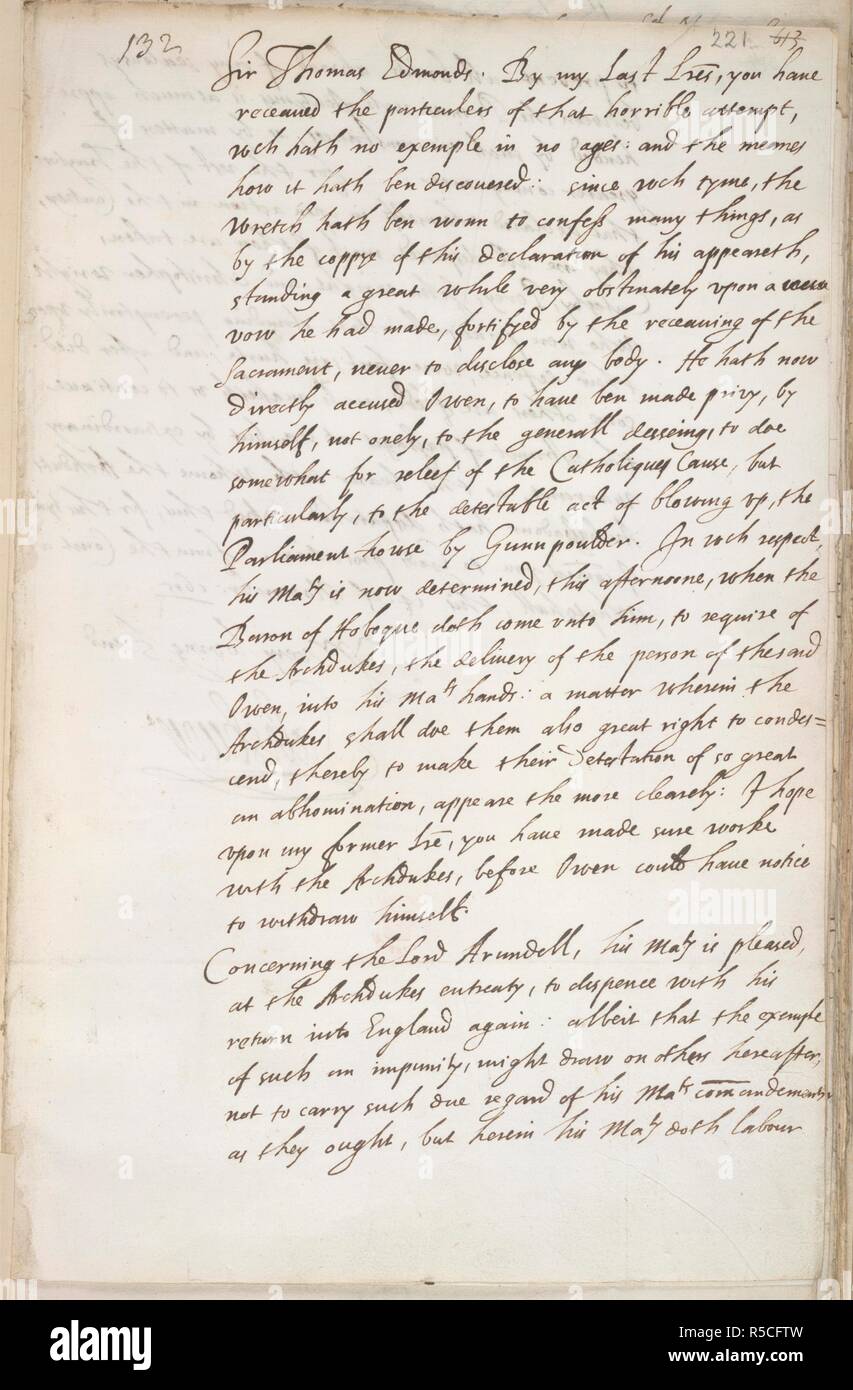 132
221 613
Sir Thomas Edmonds. By my Last Lres, you have
receaued the particulers of that horrible attempt,
wch hath no exemple in no ages: and the meanes
how it hath ben discouered: since wch tyme, the
wretch hath ben wonn to confess many things, as
by the coppye of this declaration of his appeareth,
standing a great while very obstinately upon a
vow he had made, fortifyed by the receauing of the
Sacrament, neuer to disclose any body. He hath now
directly accused Owen, to have ben made privy, by
himself, not onely, to the generall desseing, to doe
somewhat for releef of the Catholiques Cause, but
particularly, to the detestable act of blowing vp, the
Parliament howse by Gunnpoulder. In wch respect,
his Maty is now determined, this afternoone, when the
Baron of Hoboque doth come vnto him, to require of
the Archdukes, the delivery of the person of the said
Owen, into his Mats hands: a matter wherein the
Archdukes shall doe them also great right to condes=
cend, thereby to make their Detestation of so great
an abhomination, appeare the more clearely: I hope
vpon my former Lre, you have made sure worke
with the Archdukes, before Owen could have notice
to withdraw himself.
Concerning the Lord Arundell, his Maty is pleased,
at the Archdukes entreaty, to dispence with his
return into England again: albeit that the exemple
of such an impunity, might draw on others hereafter,
not to carry such due regard of his Mats commandements
as they ought, but herein his Maty doth labour
alamy
R5CFTW
www.alamy.com